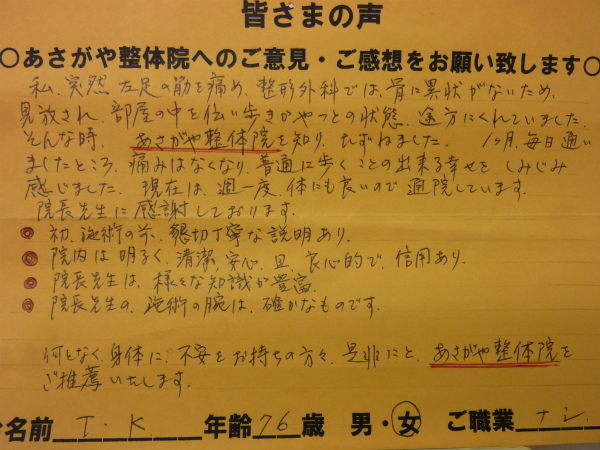 皆さまの声
○あさがや整体院へのご意見・ご感想をお願い致します○
私、突然左足の筋を痛め、整形外科では、骨に異状がないため、
見放され、部屋の中を伝い歩きがやっとの状態、途方にくれていました。
そんな時、あさがや整体院を知り、たずねました。1ヶ月、毎日通い
ましたところ、痛みはなくなり、普通に歩くことの出来る幸せをしみじみ
感じました。現在は、週一度、体にも良いので通院しています。
院長先生に感謝しております。
◎初、施術の前、懇切丁寧な説明あり。
◎院内は明るく、清潔、安心、且、良心的で、信用あり。
◎院長先生は、様々な知識が豊富。
◎院長先生の、施術の腕は、確かなものです。
何となく、身体に、不安をお持ちの方々、是非にと、あさがや整体院を
ご推薦いたします。
お名前 T.K. 年齢 76 歳 男・女 ご職業 ナシ.